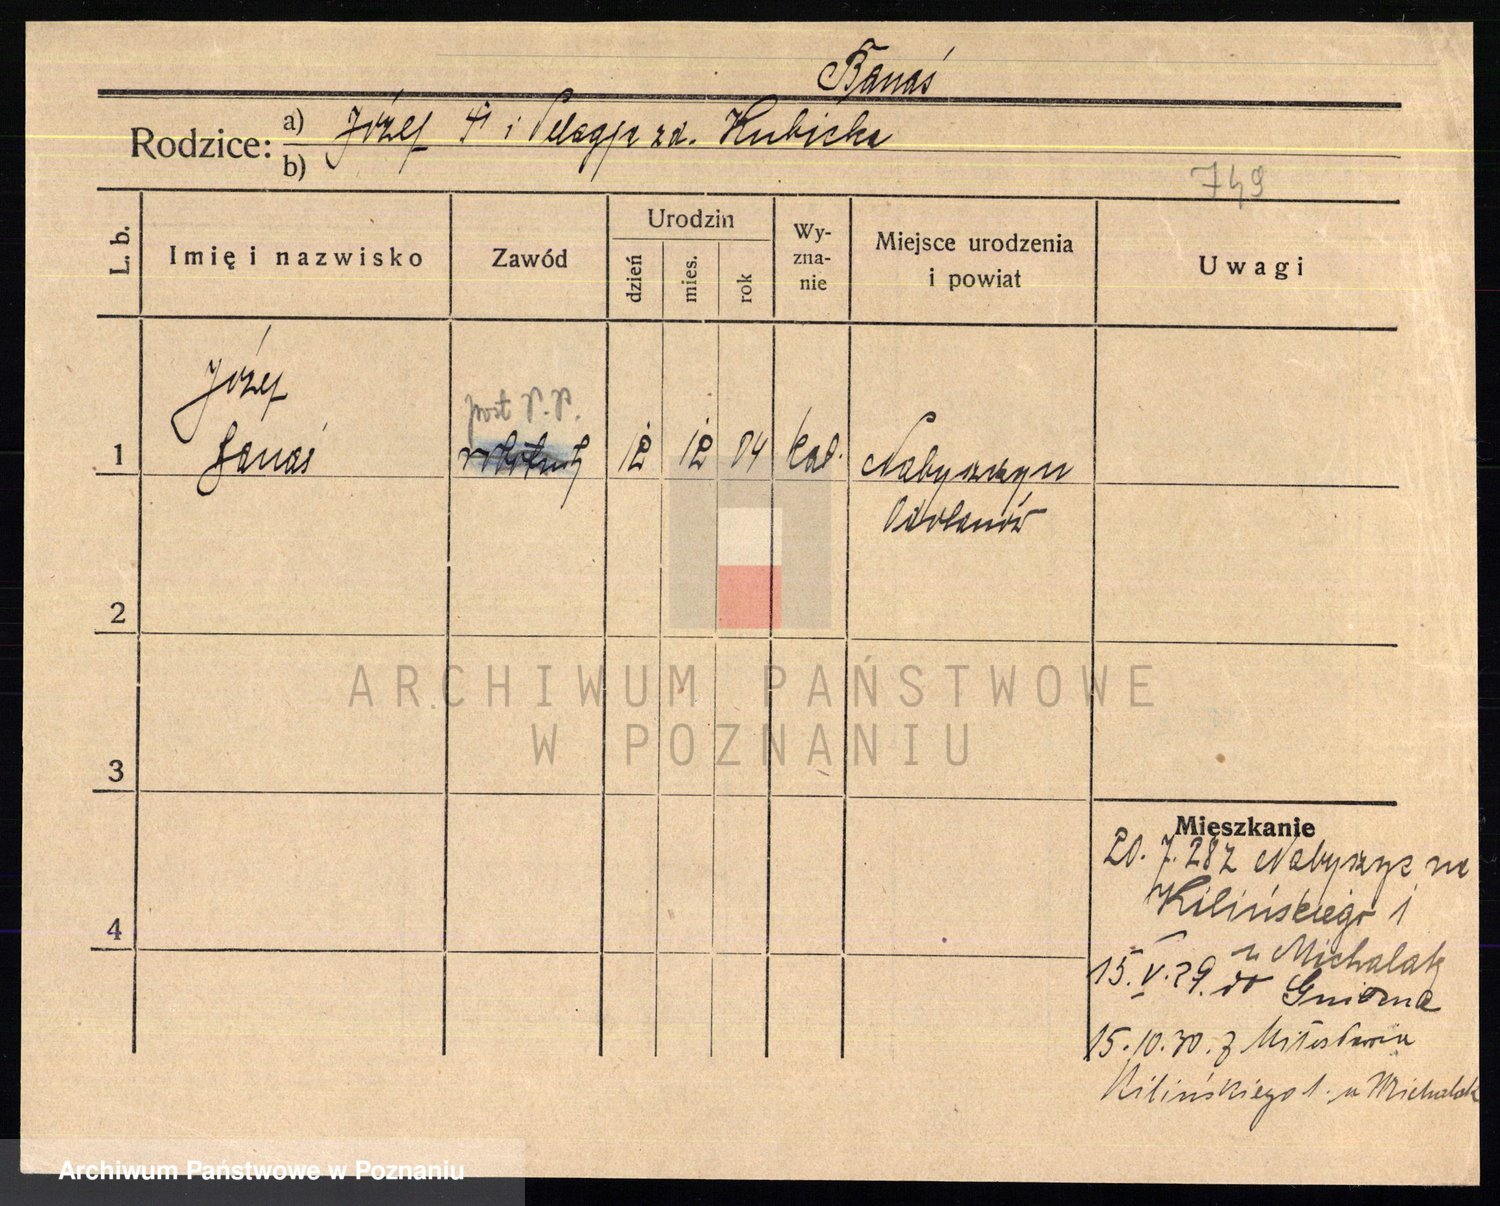 Banaś
Rodzice: a) Józef † i Pelagja zd. Kubicka
b)
749
L. b. Imię i nazwisko Zawód Urodzin dzień mies. rok Wyznanie Miejsce urodzenia i powiat Uwagi
Józef post P.P.
1 Banaś robotnik 12 12 04 kat. Nabyszyn
Odolanów
2
3
4
Mieszkanie
20. 7. 28 z Nabyszyc na
Kilińskiego 1
u Michalak
15. V. 29. do Gniezna
15. 10. 30. z Miłosławia
Kilińskiego 1. u Michalak
ARCHIWUM PAŃSTWOWE
W POZNANIU
Archiwum Państwowe w Poznaniu